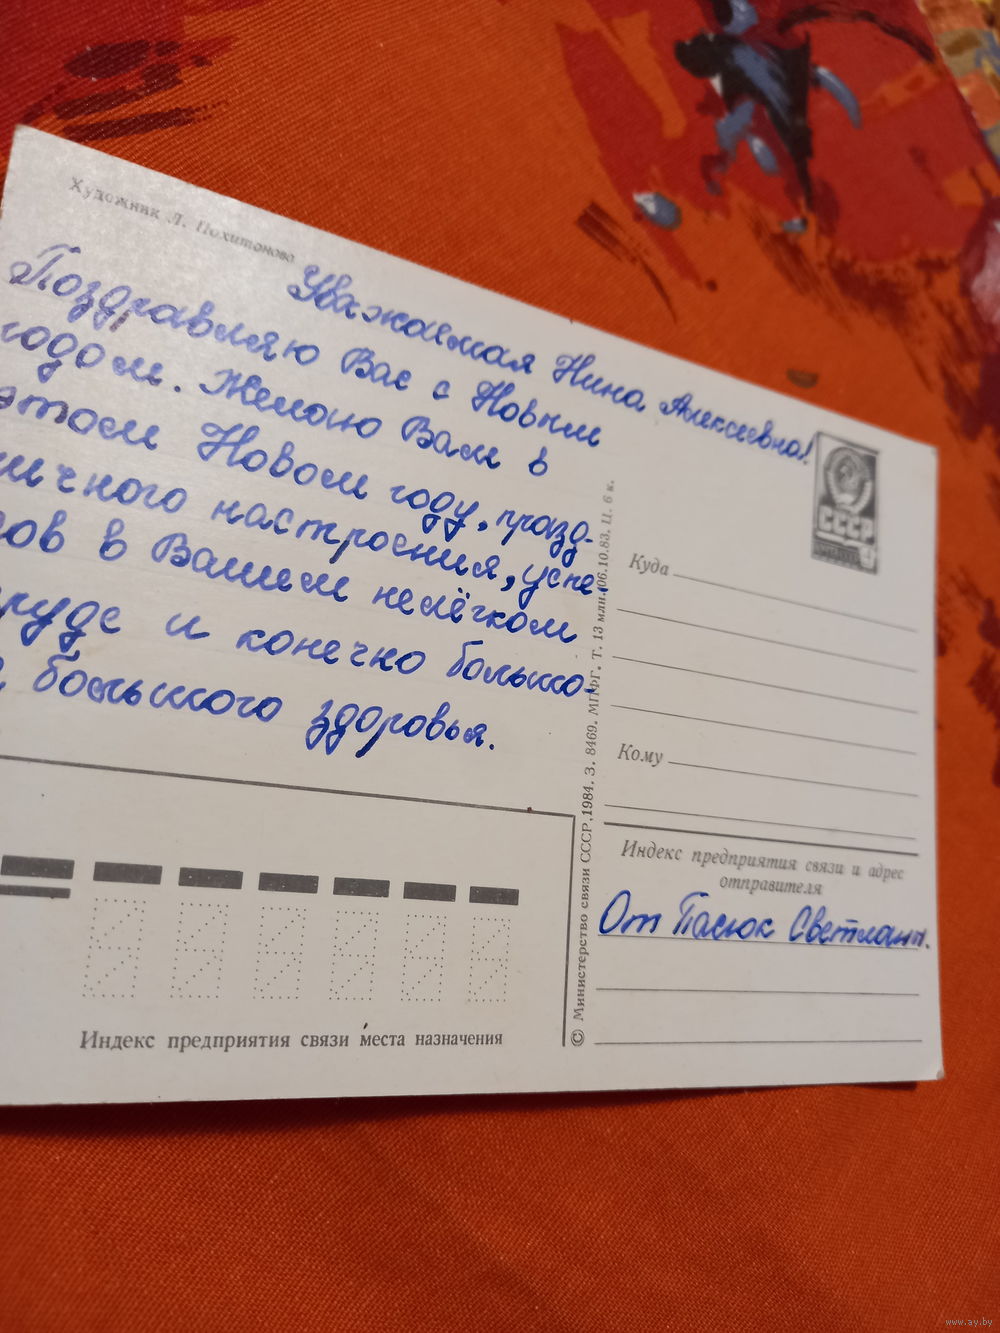 Художник Л. Похитонова
Уважаемая Нина Алексеевна!
Поздравляю Вас с Новым
годом. Желаю Вам в
этом Новом году, празд-
ичного настроения, успе-
ов в Вашем нелёгком
руде и конечно большо-
большого здоровья.
Индекс предприятия связи места назначения
© Министерство связи СССР, 1984. З. 8469. МПФГ. Т. 13 млн. 06.10.83. Ц. 6 к.
СССР
Куда
Кому
Индекс предприятия связи и адрес
отправителя
От Пасюк Светланы.
www.ay.by